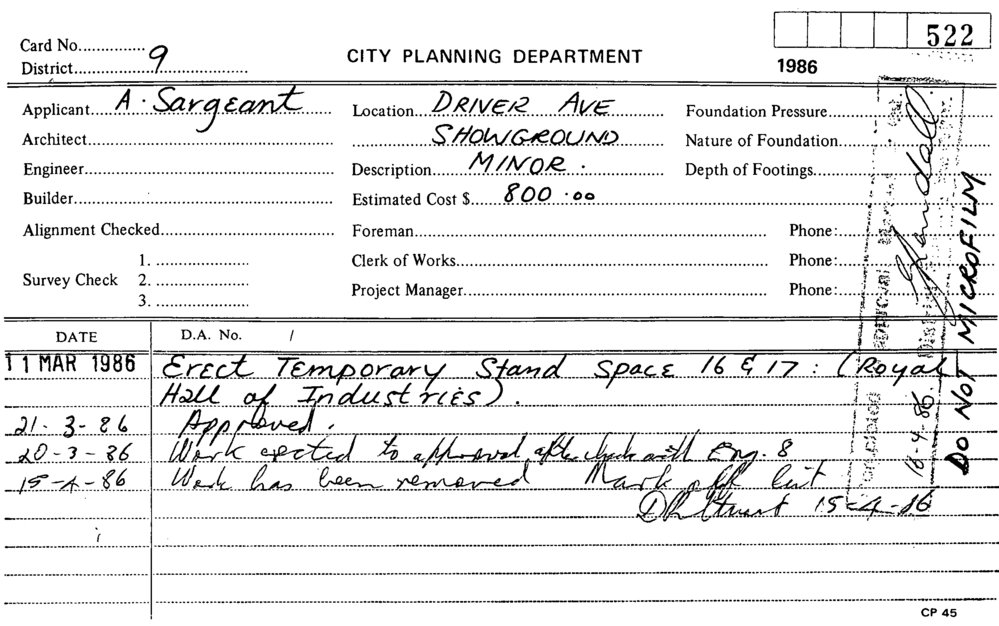 Card No...............
522
District.......9.......
CITY PLANNING DEPARTMENT
1986
Applicant A. Sargeant
Location DRIVER AVE
Foundation Pressure
Architect
SHOWGROUND
Nature of Foundation
Engineer
Description MINOR.
Depth of Footings
Builder
Estimated Cost $ 800.00
Alignment Checked
Foreman
Phone:
1.
Clerk of Works
Phone:
Survey Check 2.
Project Manager
Phone:
3.
DO NOT MICROFILM
16-4-86
DATE
D.A. No. /
11 MAR 1986 Erect Temporary Stand Space 16 & 17: (Royal
Hall of Industries).
21-3-86 Approved.
20-3-86 Work erected to approval after check with Eng. 8
15-4-86 Work has been removed Mark off list
15-4-86
CP 45